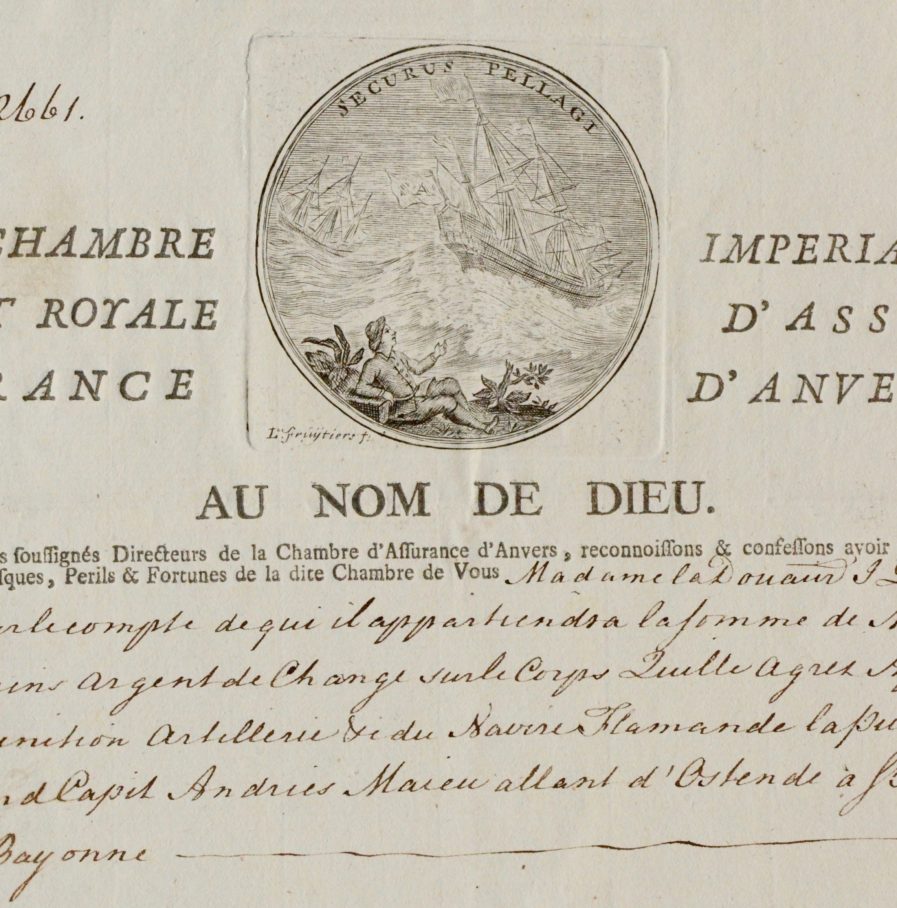 2661.
SECURUS PELLAGI
CHAMBRE IMPERIA
T ROYALE D'ASS
RANCE D'ANVE
L. Fruÿtiers f.
AU NOM DE DIEU.
s souſſignés Directeurs de la Chambre d'Aſſurance d'Anvers, reconnoiſſons & confeſſons avoir
ſques, Perils & Fortunes de la dite Chambre de Vous Madame la Douair J
ur le compte de qui il appartiendra la somme de
ins argent de Change sur le Corps Quille Agrez
nition Artillerie &c du Navire Flamande la
nd Capit Andries Maieu allant d'Ostende à
Bayonne